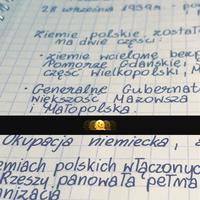 28 września 1939r. - po
Ziemie polskie została
ma dwie części:
· ziemie wcielone bezp
Pomorze Gdańskie,
część Wielkopolski, M
· Generalne Gubernat
większość Mazowsza
i Małopolska.
Okupacja niemiecka,
emiach polskich włączonych
Rzeszy panowała pełna
anizacja